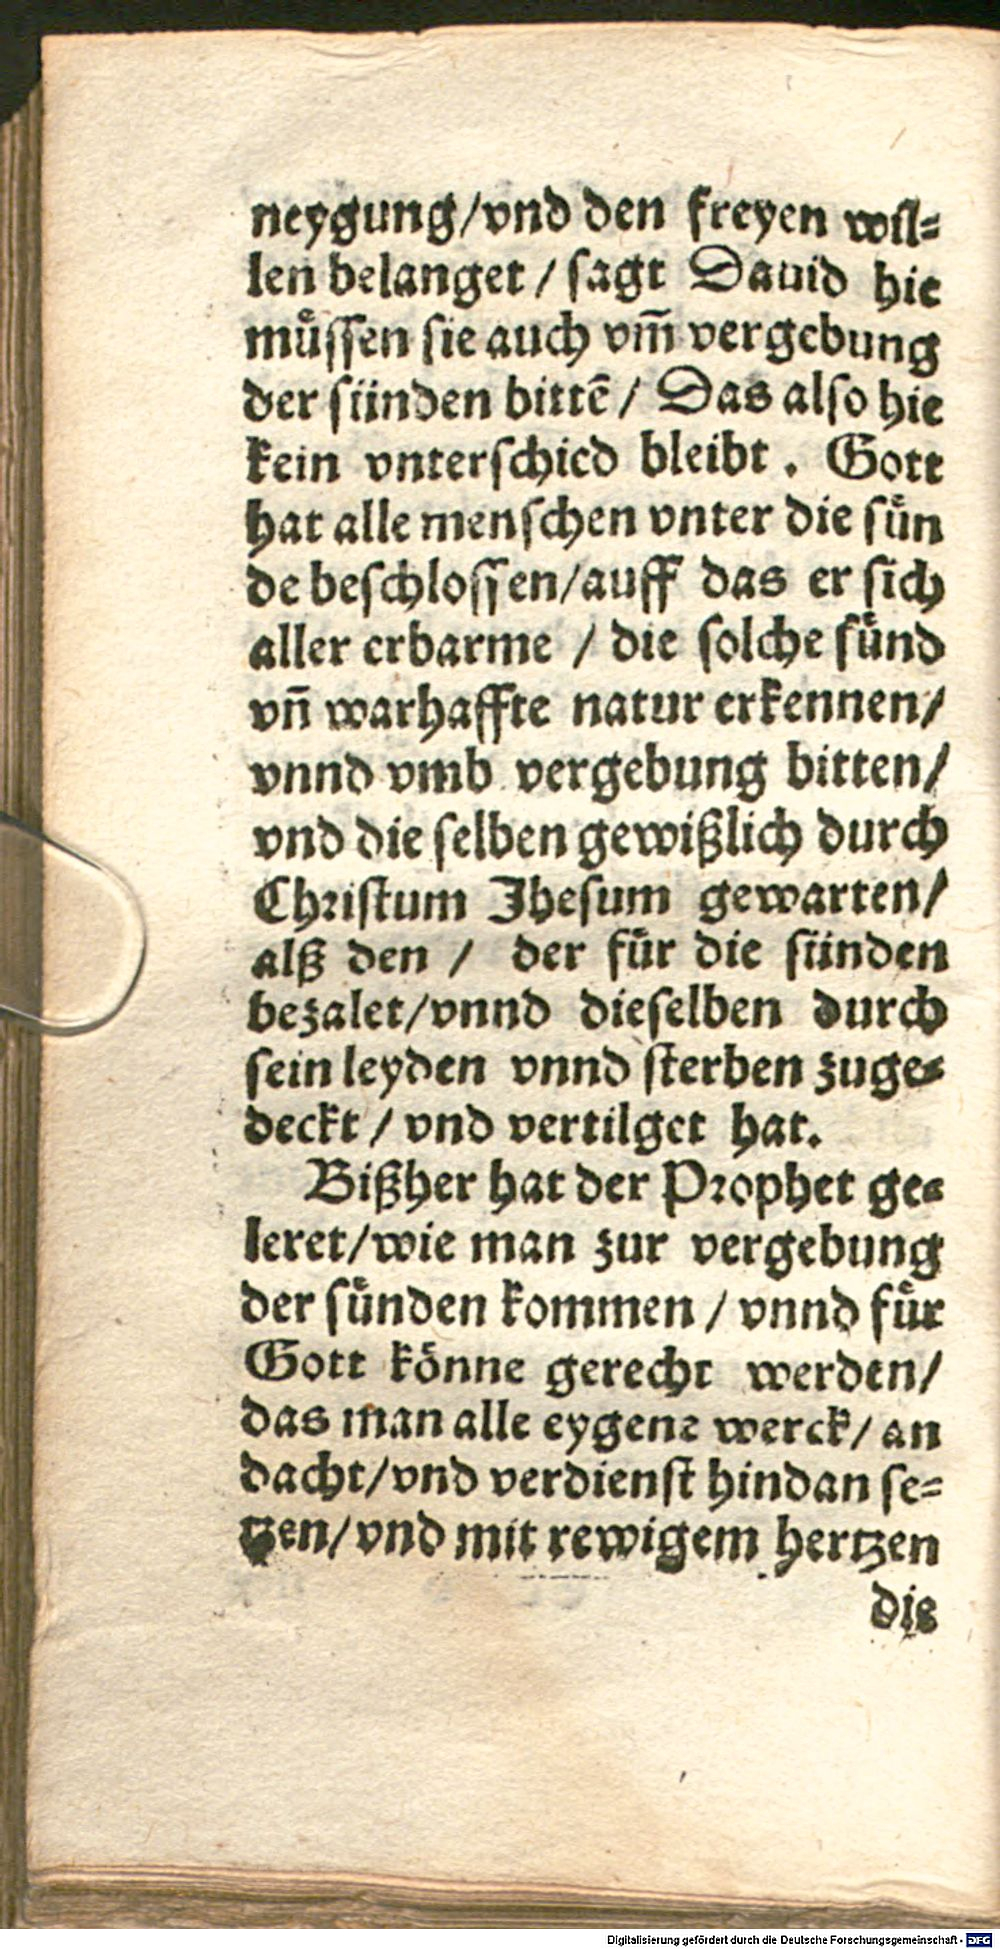 neygung/vnd den freyen wil-
len belanget / sagt Dauid hie
müssen sie auch vm̄ vergebung
der sünden bittē / Das also hie
kein vnterschied bleibt. Gott
hat alle menschen vnter die sün
de beschlossen/auff das er sich
aller erbarme / die solche sünd
vn̄ warhaffte natur erkennen/
vnnd vmb vergebung bitten/
vnd die selben gewißlich durch
Christum Jhesum gewarten/
alß den / der für die sünden
bezalet/vnnd dieselben durch
sein leyden vnnd sterben zuge-
deckt / vnd vertilget hat.
Bißher hat der Prophet ge-
leret/wie man zur vergebung
der sünden kommen / vnnd für
Gott könne gerecht werden/
das man alle eygene werck/ an
dacht/vnd verdienst hindan se-
tzen/vnd mit rewigem hertzen
die
Digitalisierung gefördert durch die Deutsche Forschungsgemeinschaft - DFG